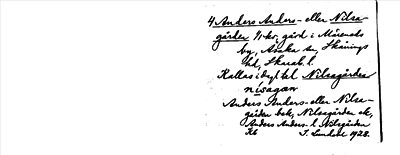 4 Anders Anders- eller Nilsa-
gården 1/1 kv, gård i Mårends
by, Asaka sn, Skånings
hd, Skarab. l.
Kallas i bygd tal Nilsagården
nisagan
Anders Anders- eller Nilsa-
gården bok, Nilsagården ek,
Anders Anders- l. Nilsgården
Kb J. Lundal 1928.